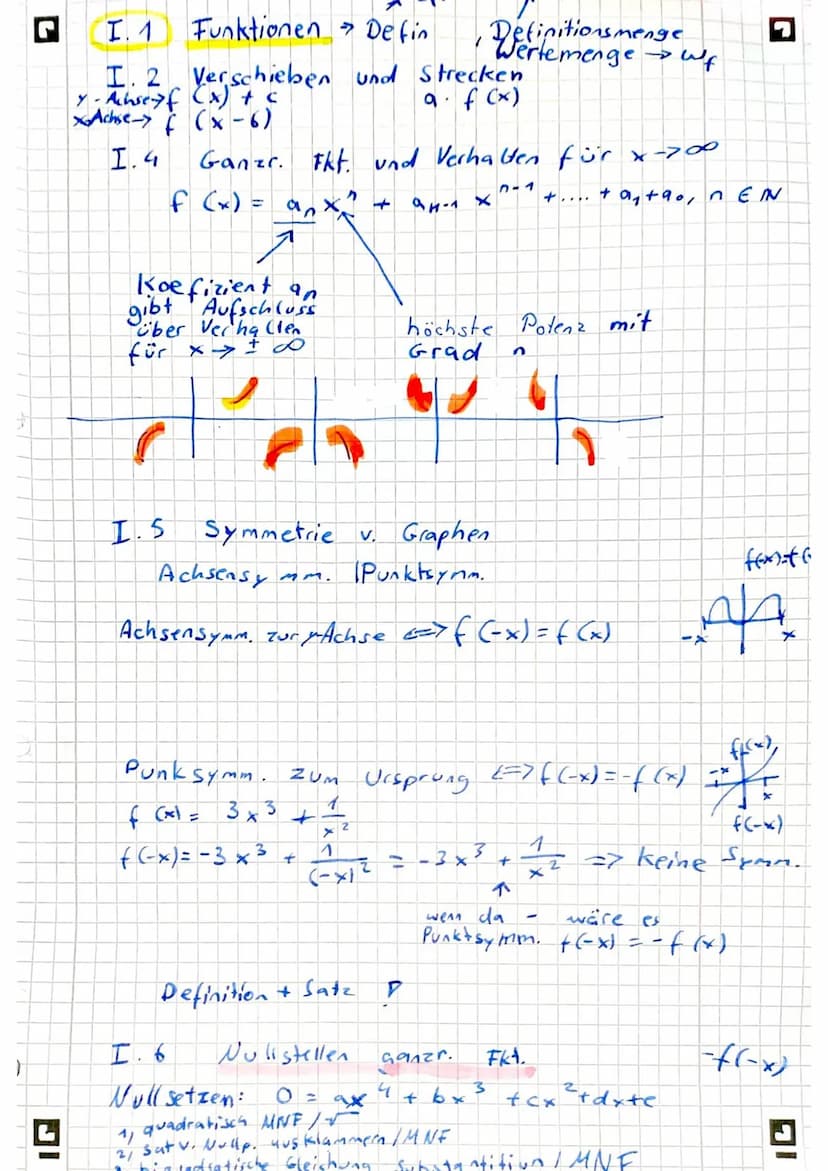 I.1 Funktionen → Defin , Definitionsmenge
Wertemenge → Wf
I.2 Verschieben und Strecken
y-Achse→ f (x) + c a · f(x)
x-Achse→ f (x-6)
I.4 Ganzr. Fkt. und Verhalten für x→∞
f (x) = aₙxⁿ + aₙ₋₁ xⁿ⁻¹ + .... + a₁+a₀, n ∈ ℕ
Koefizient aₙ
gibt Aufschluss
über Verhalten
für x → ± ∞
höchste Potenz mit
Grad n
I.5 Symmetrie v. Graphen
Achsensymm. |Punktsymm.
f(-x)=f(
Achsensymm. zur y-Achse <=> f (-x) = f (x)
-x x
Punksymm. zum Ursprung <=> f(-x) = -f (x)
f(x)
-x x
f(-x)
f (x) = 3x³ + 1/x²
f(-x) = -3x³ + 1/(-x)² = -3x³ + 1/x² => keine Symm.
wenn da - wäre es
Punktsymm. f(-x) = -f (x)
Definition + Satz
I.6 Nullstellen ganzr. Fkt.
-f(-x)
Nullsetzen: 0 = ax⁴ + bx³ + cx² + dx + e
1, quadratisch MNF/√
2, Satz v. Nullp. ausklammern/MNF
Gleichung Substantition / MNF